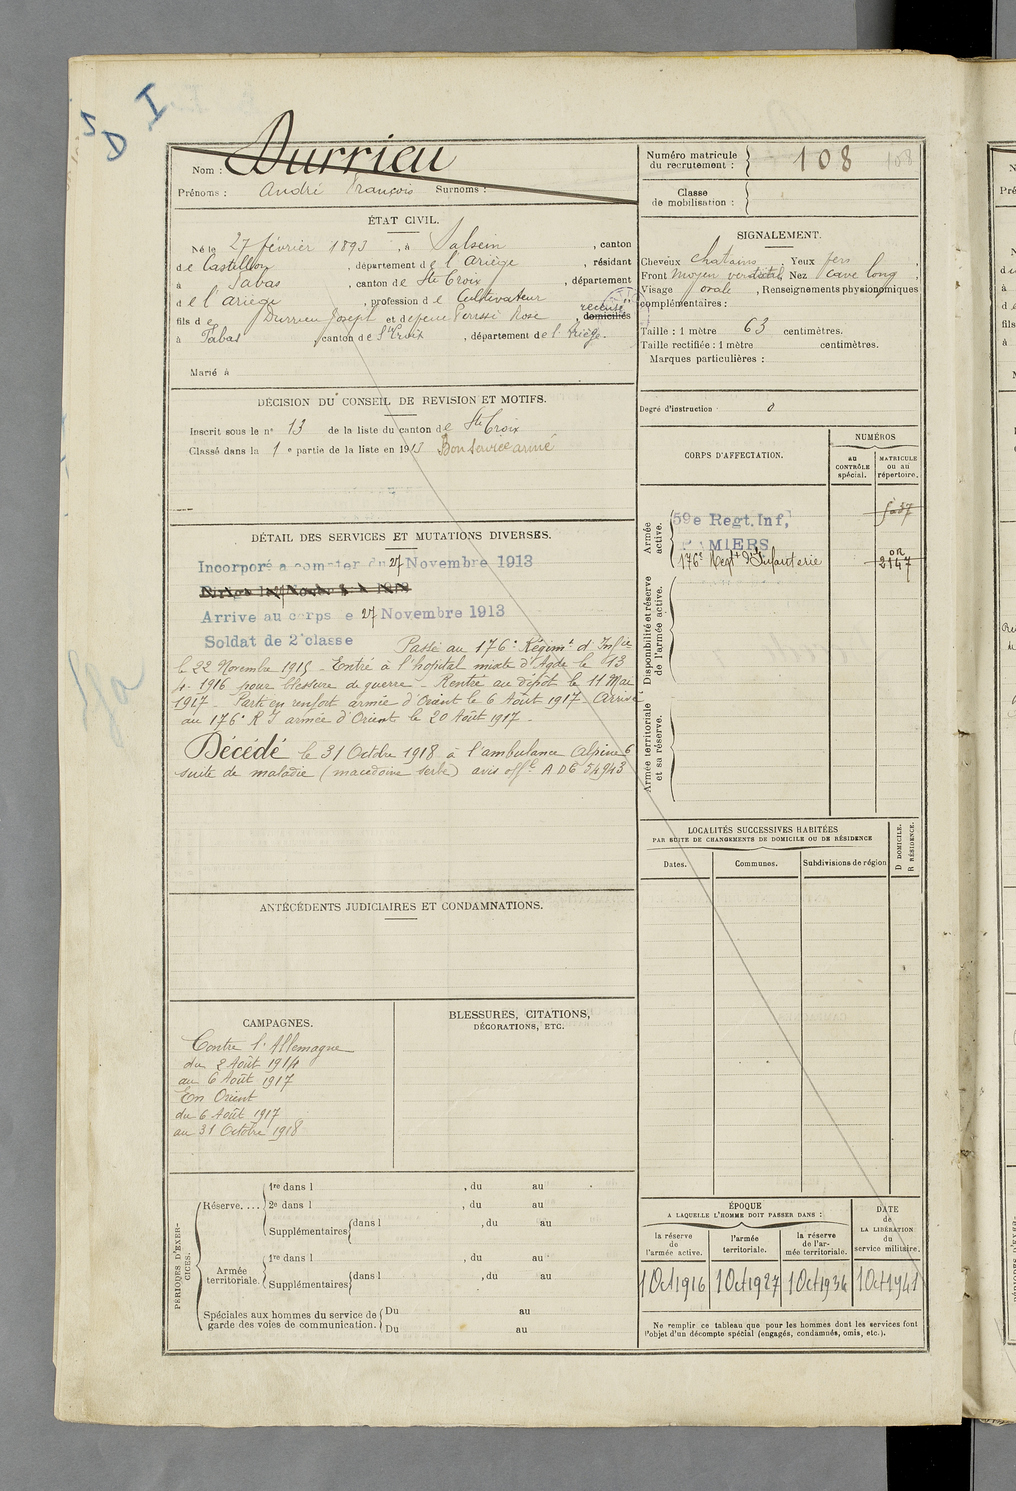 I
S D
Nom : Durrieu
Prénoms : André François Surnoms :
Numéro matricule du recrutement : 108 108
Classe de mobilisation :
ÉTAT CIVIL.
Né le 27 février 1893, à Salsein, canton
de Castillon, département de l'Ariège, résidant
à Tabas, canton de Ste Croix, département
de l'Ariège, profession de Cultivateur
fils de Durrieu Joseph et de feue Rose, domiciliés
à Tabas canton de Ste Croix, département de l'Ariège.
Marié à
SIGNALEMENT.
Cheveux chatains. Yeux
Front moyen vertical Nez cave long,
Visage ovale, Renseignements physionomiques
complémentaires :
Taille : 1 mètre 63 centimètres.
Taille rectifiée : 1 mètre centimètres.
Marques particulières :
Degré d'instruction : 0
DÉCISION DU CONSEIL DE REVISION ET MOTIFS.
Inscrit sous le n° 13 de la liste du canton de Ste Croix
Classé dans la 1e partie de la liste en 1913 Bon service armé
CORPS D'AFFECTATION.
NUMÉROS
au CONTRÔLE spécial.
MATRICULE ou au répertoire.
Armée active.
59e Regt. Inf,
PAMIERS
176e Regt d'Infanterie 2147
Disponibilité et réserve de l'armée active.
Armée territoriale et sa réserve.
DÉTAIL DES SERVICES ET MUTATIONS DIVERSES.
Incorporé a compter du 27 Novembre 1913
Arrivé au corps le 27 Novembre 1913
Soldat de 2e classe Passé au 176e Régimt d'Infie
le 22 Novembre 1915 - Entré à l'hôpital mixte d'Agde le 13
4. 1916 pour blessure de guerre - Rentré au dépôt le 11 Mai
1917 - Parti en renfort armée d'Orient le 6 Août 1917 Arrivé
au 176e R I armée d'Orient le 20 Août 1917 -
Décédé le 31 Octobre 1918 à l'ambulance Alpine 6
suite de maladie (macédoine serbe) avis offel A D 6 54943
LOCALITÉS SUCCESSIVES HABITÉES
PAR SUITE DE CHANGEMENTS DE DOMICILE OU DE RÉSIDENCE
Dates. Communes. Subdivisions de région
D DOMICILE.
R RÉSIDENCE.
ANTÉCÉDENTS JUDICIAIRES ET CONDAMNATIONS.
CAMPAGNES.
Contre l'Allemagne
du 2 Août 1914
au 6 Août 1917
En Orient
du 6 Août 1917
au 31 Octobre 1918
BLESSURES, CITATIONS,
DÉCORATIONS, ETC.
PÉRIODES D'EXERCICES.
Réserve....
1re dans l , du au
2e dans l , du au
Supplémentaires dans l , du au
Armée territoriale.
1re dans l , du au
Supplémentaires dans l , du au
Spéciales aux hommes du service de
garde des voies de communication.
Du au
Du au
ÉPOQUE
A LAQUELLE L'HOMME DOIT PASSER DANS :
la réserve de l'armée active.
l'armée territoriale.
la réserve de l'armée territoriale.
DATE de LA LIBÉRATION du service militaire.
1 Oct 1916 1 Oct 1927 1 Oct 1934 1 Oct 1941
Ne remplir ce tableau que pour les hommes dont les services font
l'objet d'un décompte spécial (engagés, condamnés, omis, etc.).